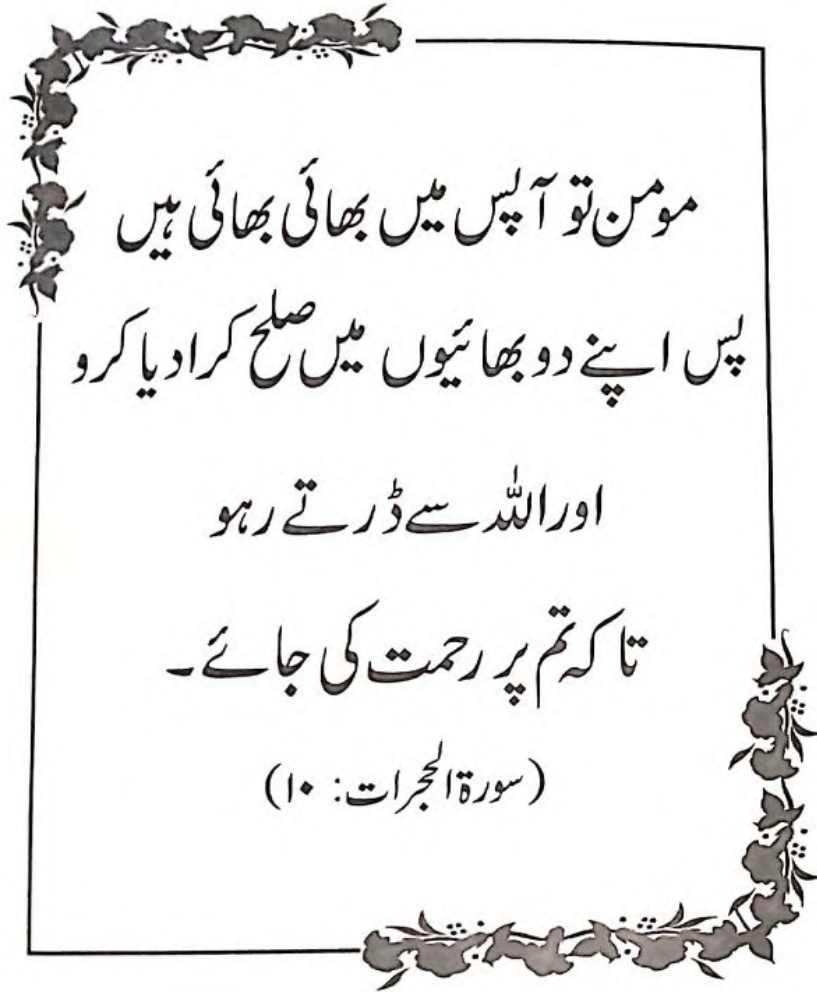 مومن تو آپس میں بھائی بھائی ہیں
پس اپنے دو بھائیوں میں صلح کرا دیا کرو
اور اللہ سے ڈرتے رہو
تا کہ تم پر رحمت کی جائے۔
(سورۃ الحجرات: ۱۰)